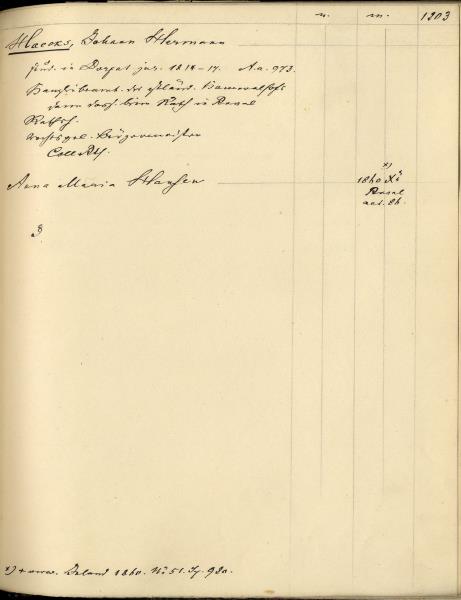 n. m. 1203
Haecks, Johann Hermann
stud. in Dorpat jur. 1814-17. A.a. 973.
Kanzleibeamt. der estländ. Kameralhof.
dann dors. beim Rath in Reval
Rathsh.
rechtsgel. Bürgermeister
Coll.Rth.
Anna Maria Hansen
*)
1860
Reval
aet. 86.
*) Inland 1860. No 51. Sp. 980.